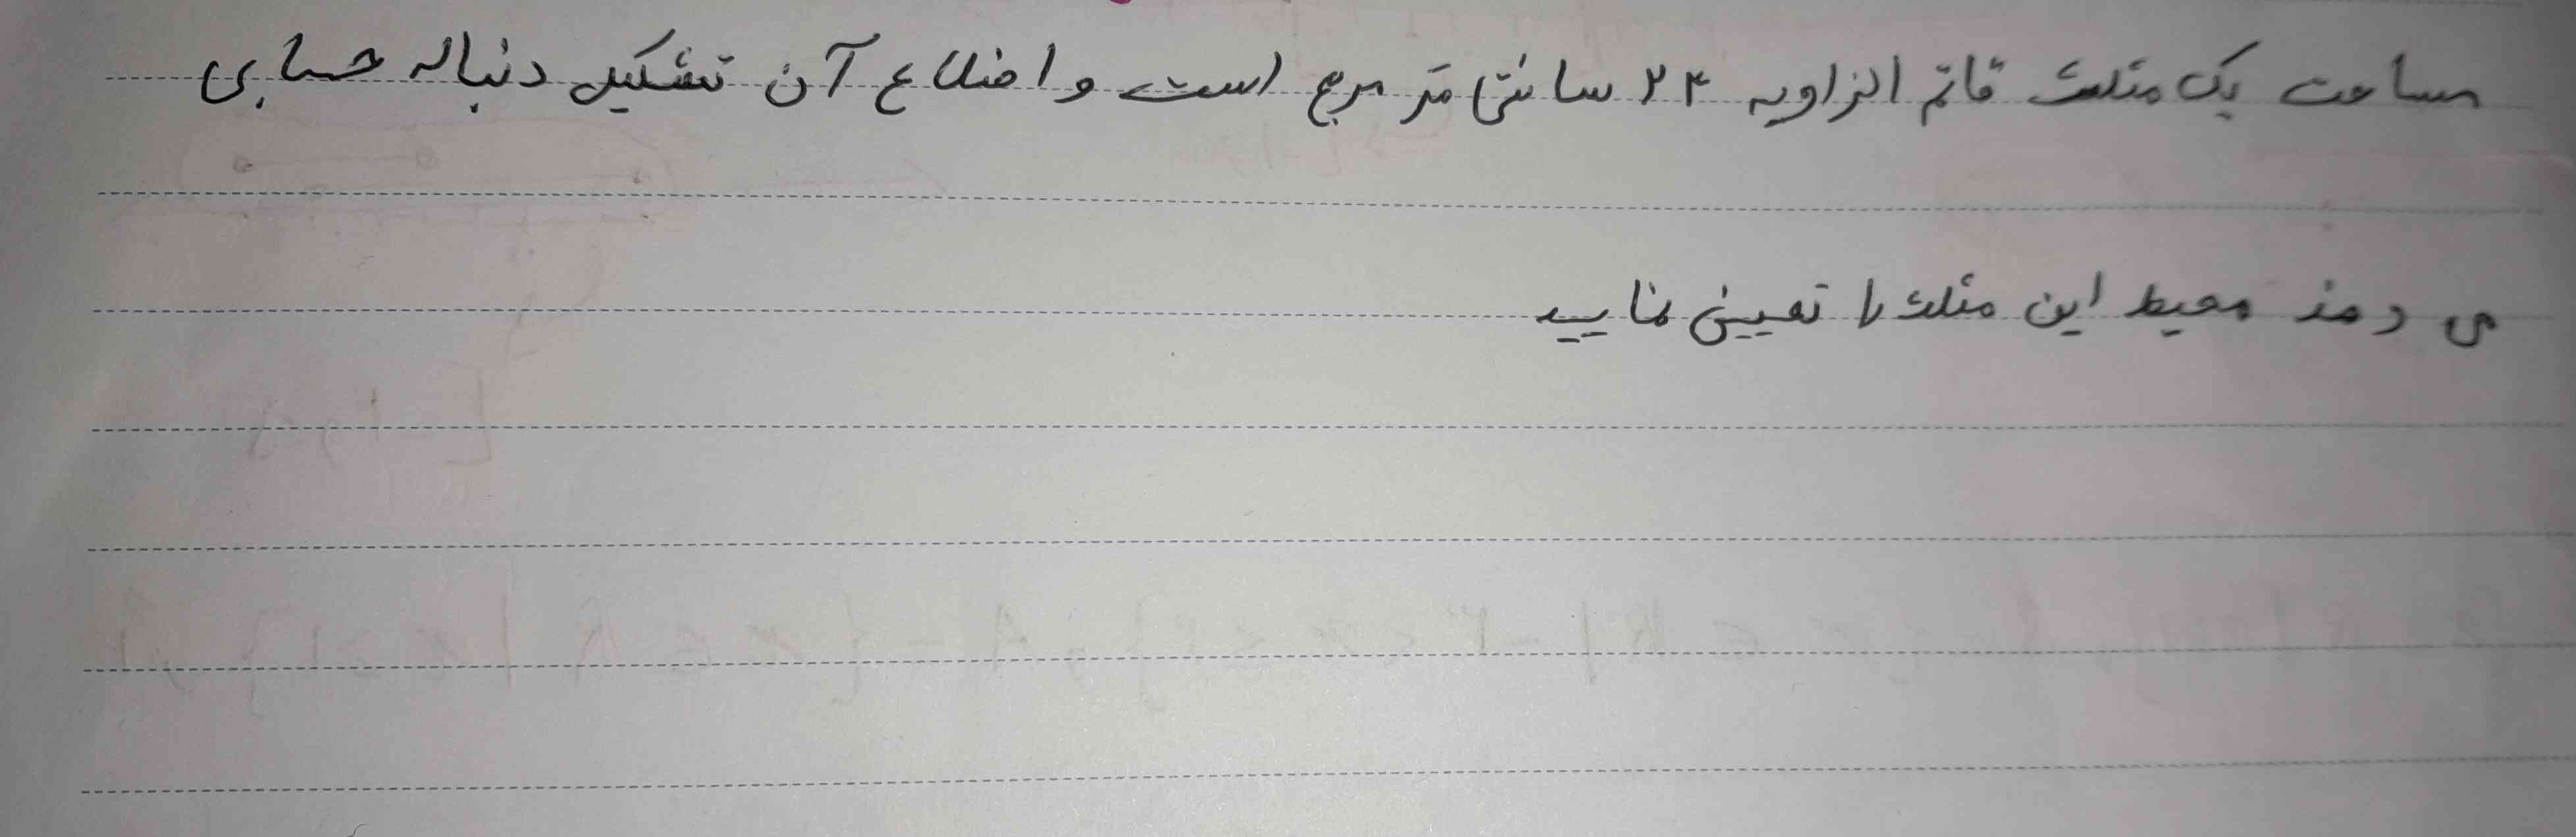 مساحت یک مثلث قائم الزاویه ۲۴ سانتی متر مربع است و اضلاع آن تشکیل دنباله حسابی
می دهند محیط این مثلث را تعیین نمایید